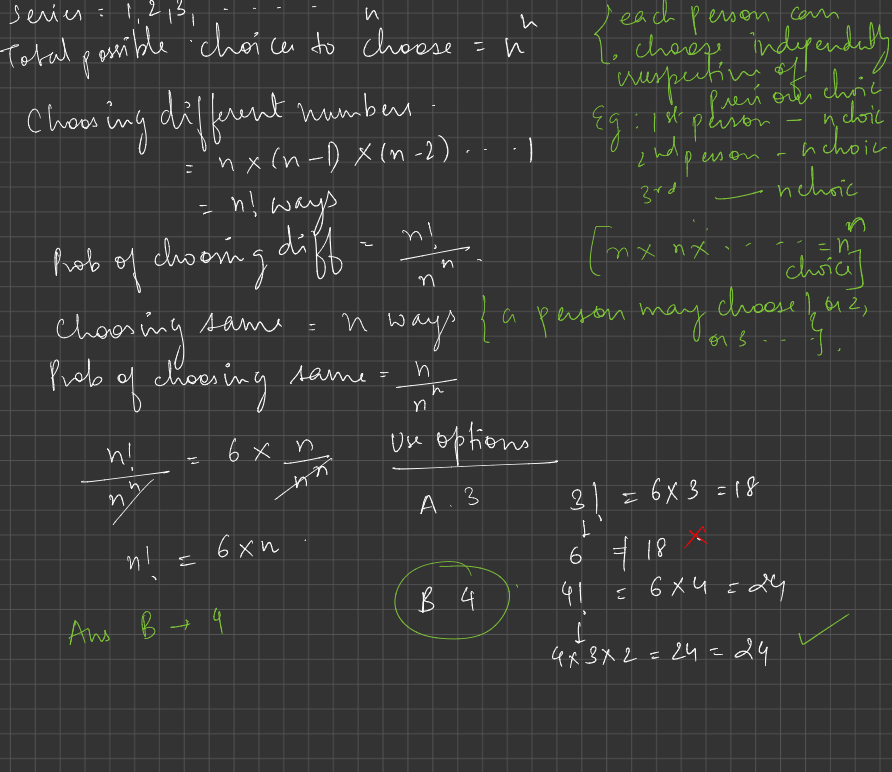 series = 1, 2, 3, ...... n
Total possible choices to choose = n^n
{ each person can
choose independently
irrespective of
previous choice
Eg: 1st person – n choic
2nd person – n choic
3rd — n choic
[n × n × ...... = n^n
choice]
Choosing different numbers.
= n × (n-1) × (n-2) .... 1
= n! ways
Prob of choosing diff = n!/n^n.
Choosing same = n ways
{ a person may choose 1, or 2,
or 3 ....}.
Prob of choosing same = n/n^n
n!/n^n = 6 × n/n^n
n! = 6 × n
Ans B → 4
Use options
A. 3
3! = 6×3 = 18
↓
6 ≠ 18 ×
B 4
4! = 6×4 = 24
↓
4×3×2 = 24 = 24 ✓